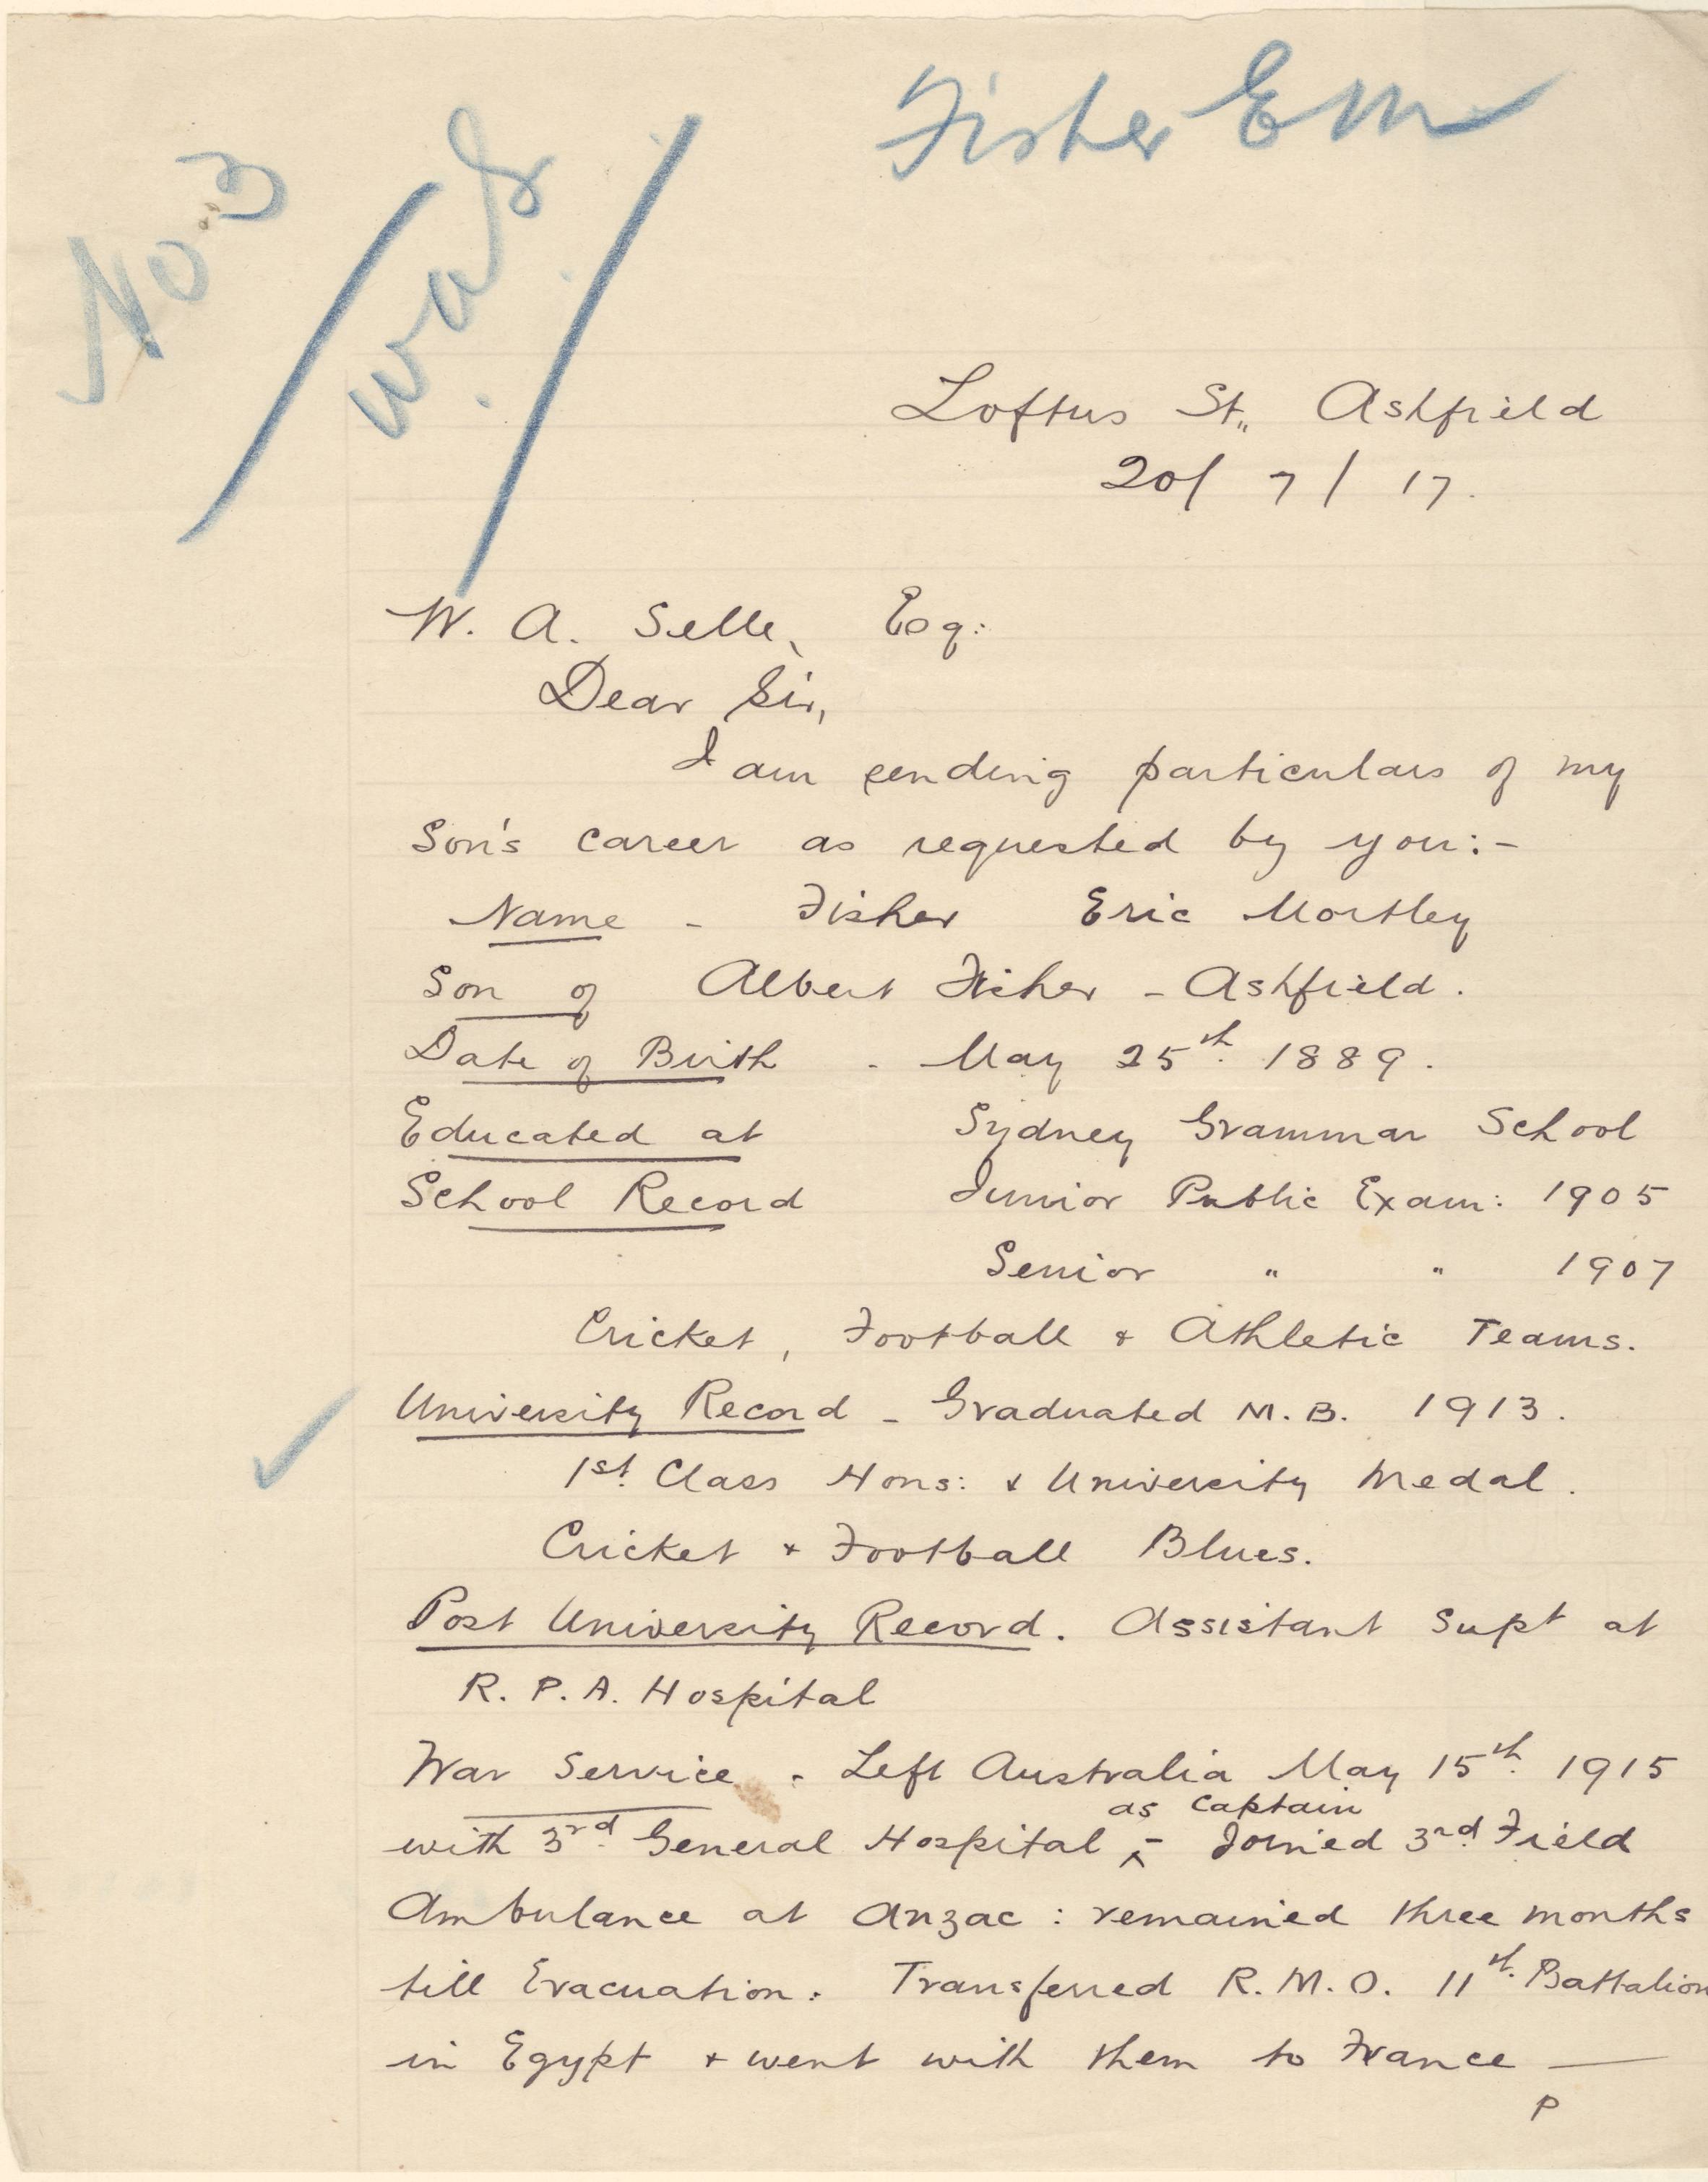 Fisher E M
No 3
WaS
Loftus St,, Ashfield
20/ 7 / 17.
W. A. Selle, Esq:
Dear Sir,
I am sending particulars of my
Son's career as requested by you:-
Name - Fisher Eric Mortley
Son of Albert Fisher - Ashfield.
Date of Birth - May 25th. 1889.
Educated at Sydney Grammar School
School Record Junior Public Exam: 1905
Senior " " 1907
Cricket, Football & Athletic Teams.
University Record - Graduated M.B. 1913.
1st. Class Hons: & University Medal.
Cricket & Football Blues.
Post University Record. Assistant Supt at
R. P. A. Hospital
War Service - Left Australia May 15th. 1915
as Captain
with 3rd. General Hospital ^ - Joined 3rd. Field
Ambulance at Anzac: remained three months
till Evacuation: Transferred R. M. O. 11th. Battalion
in Egypt & went with them to France —
P